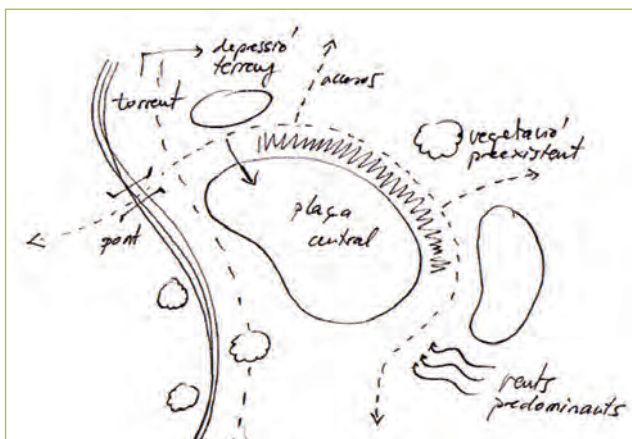 depressió
terreny
torrent
accesos
vegetació
preexistent
plaça
central
pont
vents
predominants